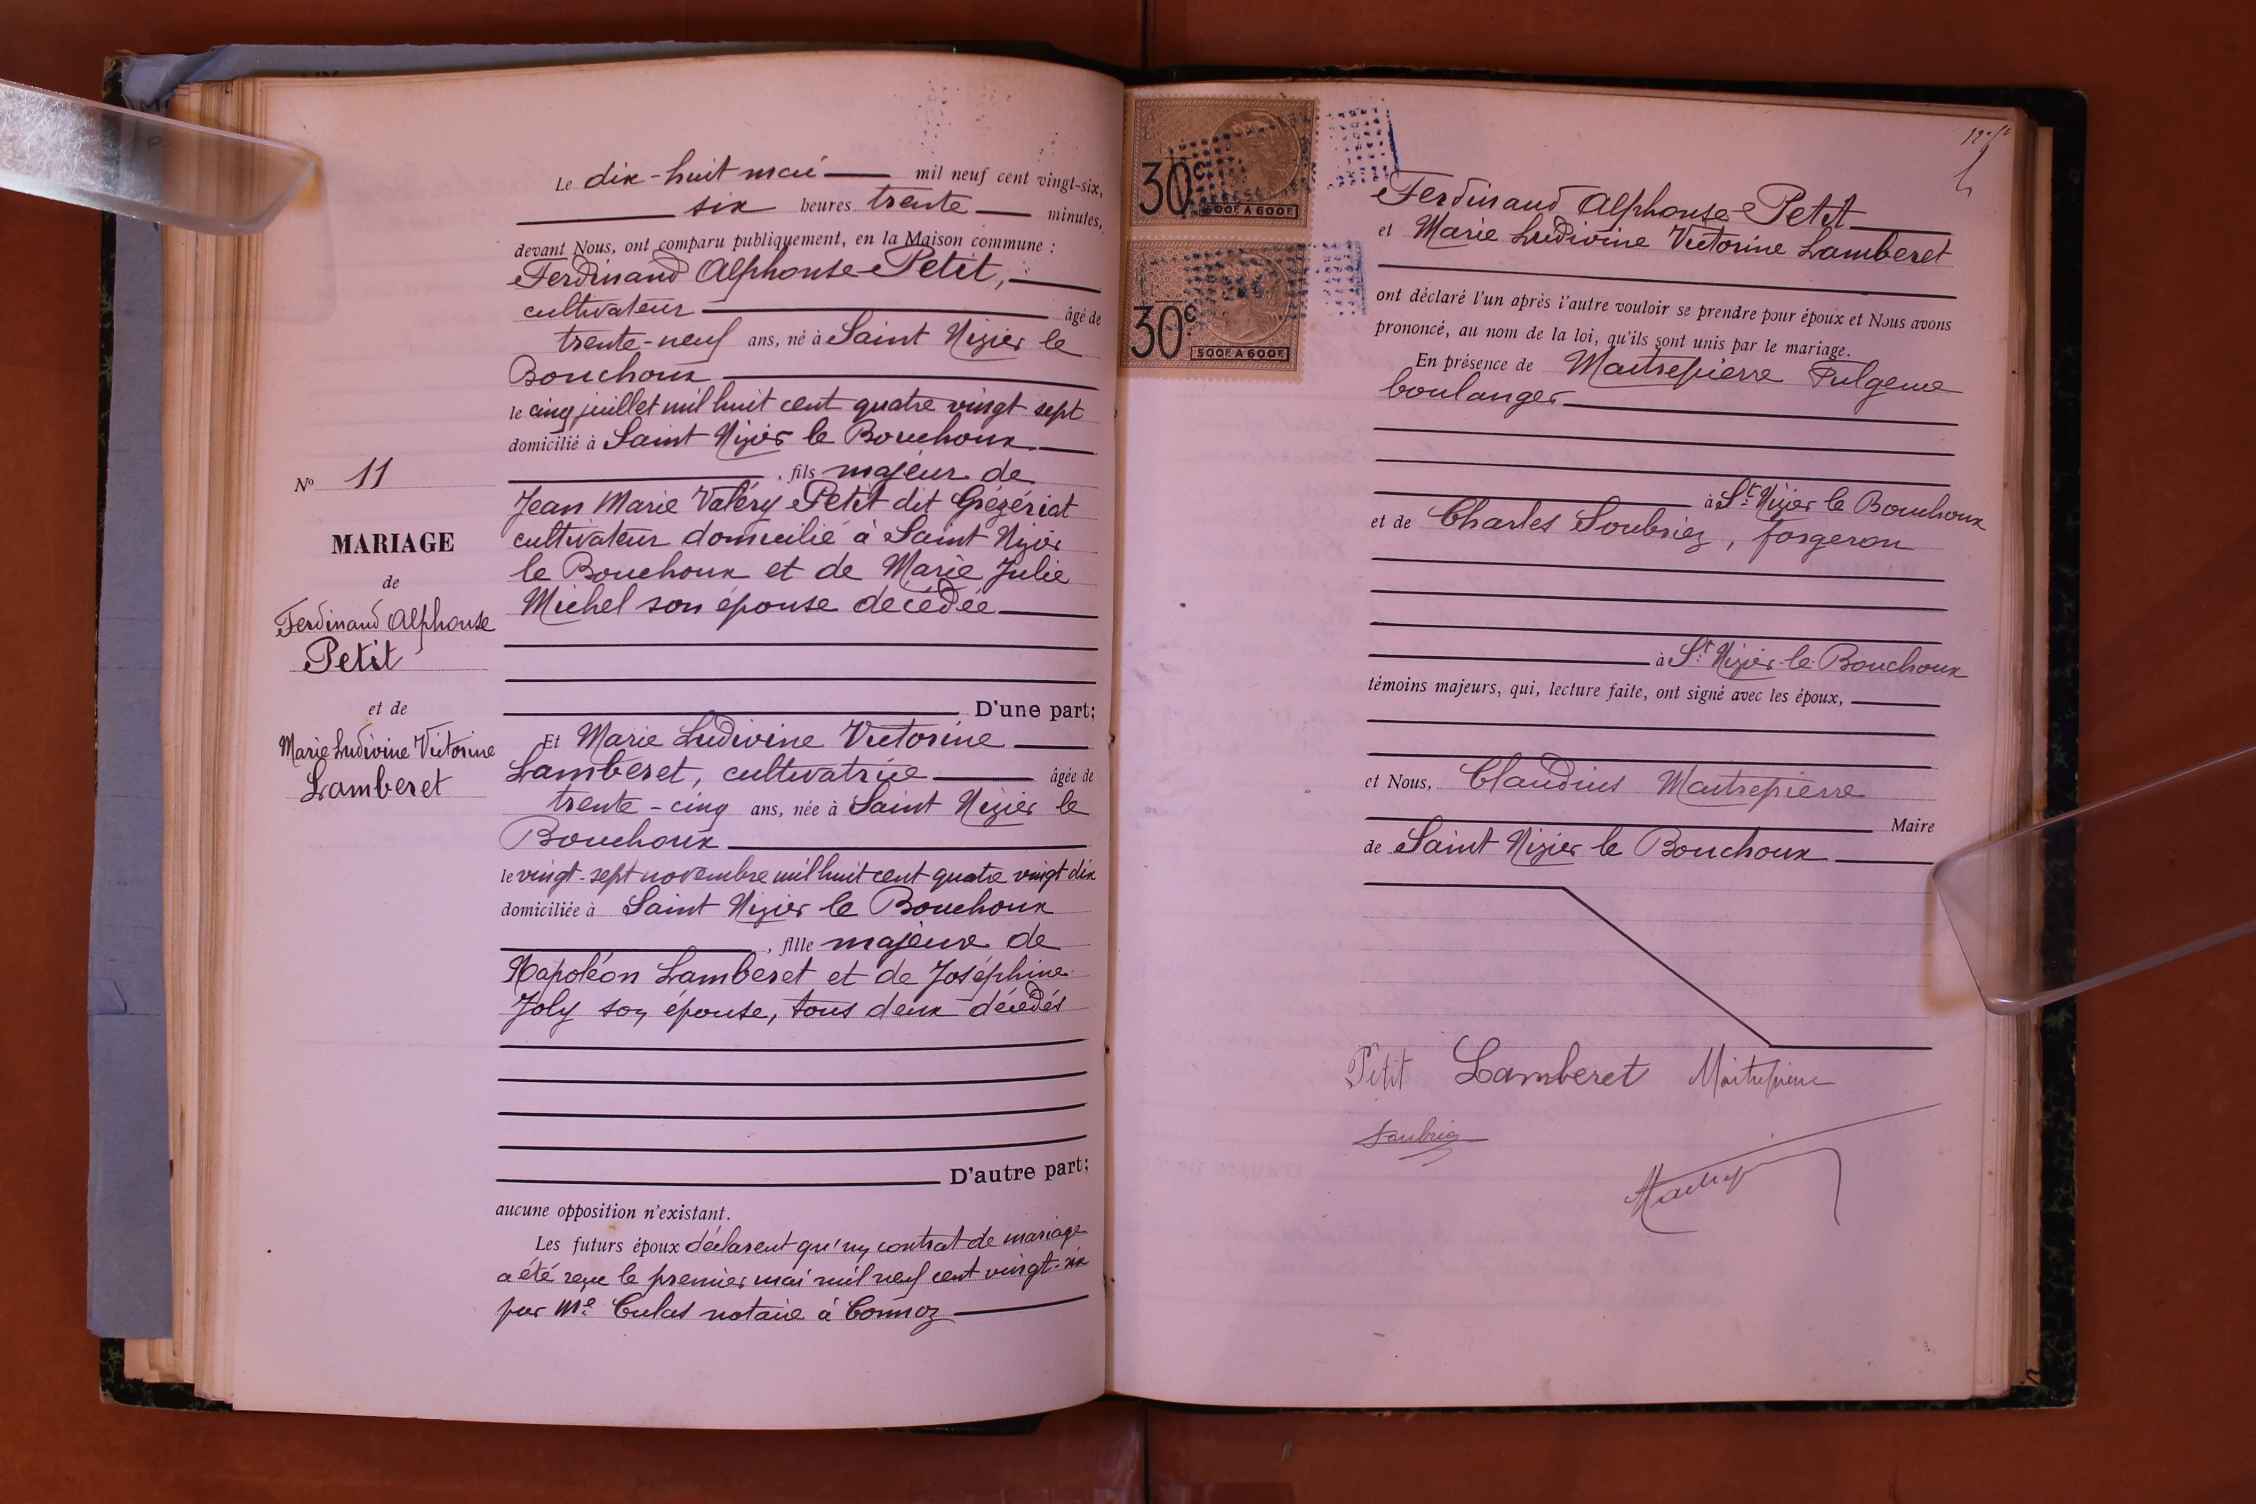 Le dix-huit mai mil neuf cent vingt-six,
six heures trente minutes,
devant Nous, ont comparu publiquement, en la Maison commune :
Ferdinand Alphonse Petit,
cultivateur âgé de
trente-neuf ans, né à Saint Nizier le
Bouchoux
le cinq juillet mil huit cent quatre vingt sept
domicilié à Saint Nizier le Bouchoux
, fils majeur de
Jean Marie Valéry Petit dit Grézériat
cultivateur domicilié à Saint Nizier
le Bouchoux et de Marie Julie
Michel son épouse décédée
D'une part;
Et Marie Ludivine Victorine
Lamberet, cultivatrice âgée de
trente-cinq ans, née à Saint Nizier le
Bouchoux
le vingt-sept novembre mil huit cent quatre vingt dix
domiciliée à Saint Nizier le Bouchoux
, fille majeure de
Napoléon Lamberet et de Joséphine
Joly son épouse, tous deux décédés
D'autre part;
aucune opposition n'existant.
Les futurs époux déclarent qu'un contrat de mariage
a été reçu le premier mai mil neuf cent vingt-six
par Me Culas notaire à Cormoz
No 11
MARIAGE
de
Ferdinand Alphonse
Petit
et de
Marie Ludivine Victorine
Lamberet
30c
500F A 600F
30c
500F A 600F
Ferdinand Alphonse Petit
et Marie Ludivine Victorine Lamberet
ont déclaré l'un après l'autre vouloir se prendre pour époux et Nous avons
prononcé, au nom de la loi, qu'ils sont unis par le mariage.
En présence de Maitrepierre Fulgence
boulanger
à St Nizier le Bouchoux
et de Charles Soubriez, forgeron
à St Nizier-le-Bouchoux
témoins majeurs, qui, lecture faite, ont signé avec les époux,
et Nous, Claudius Maitrepierre
Maire
de Saint Nizier le Bouchoux
Petit Lamberet Maitrepierre
Soubriez